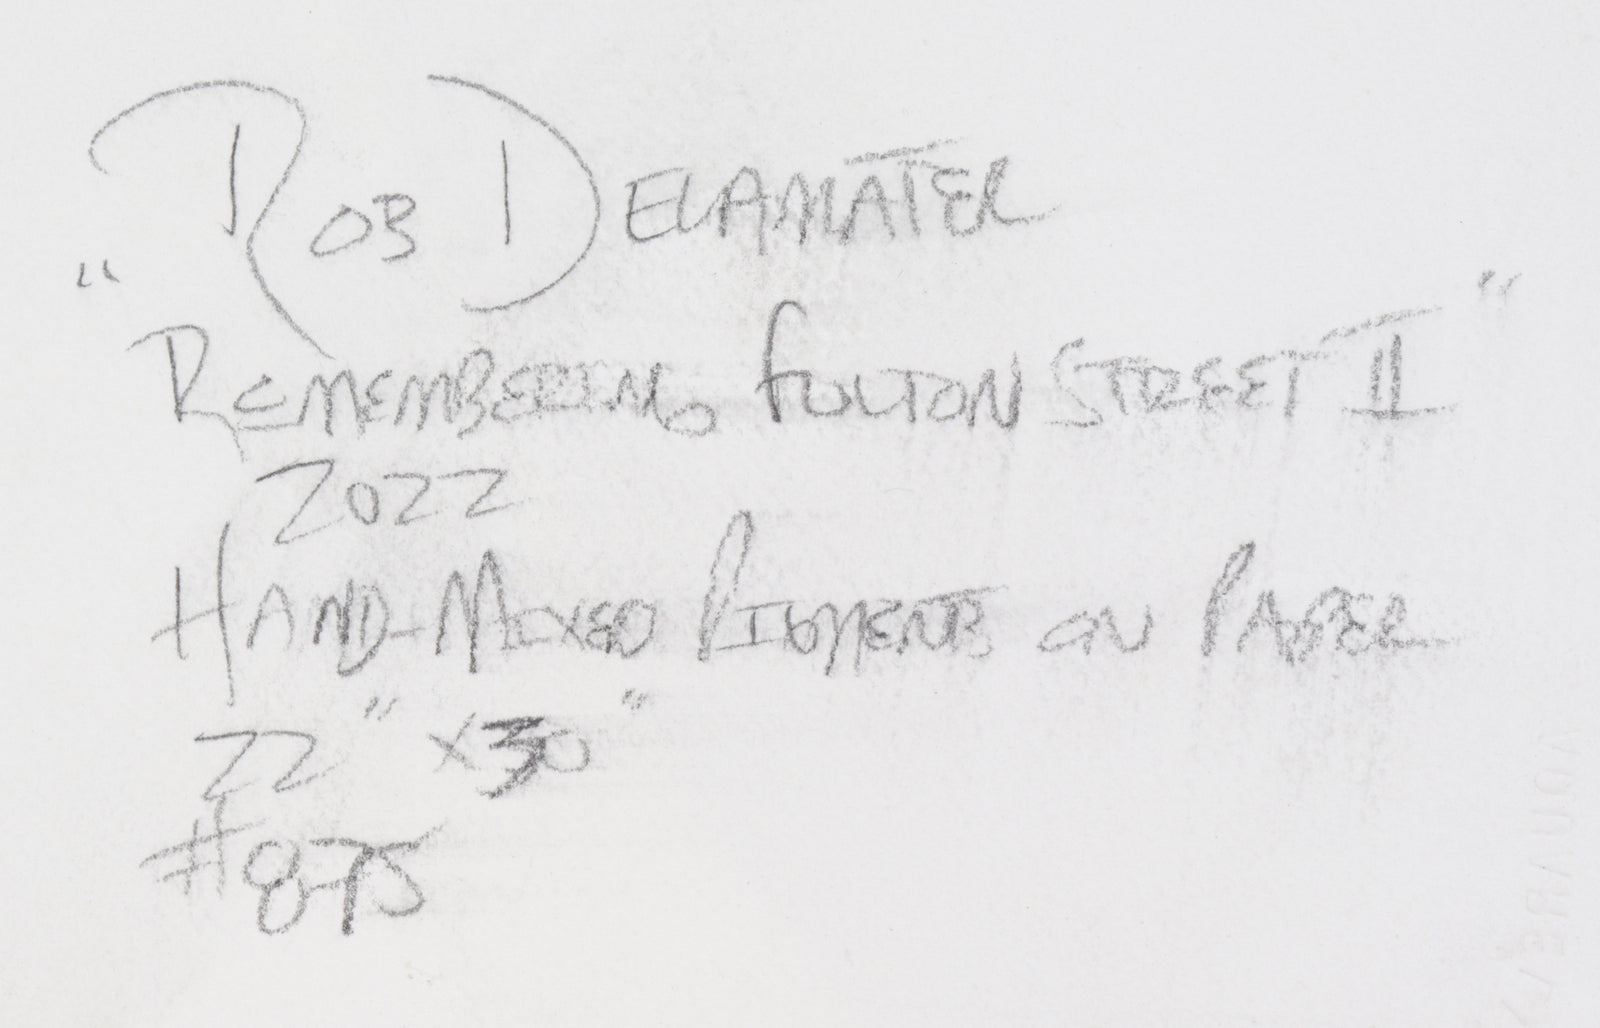 Rob Delamater
"Remembering Fulton Street II"
2022
Hand-Mixed Pigments on Paper
22" x 30"
#875